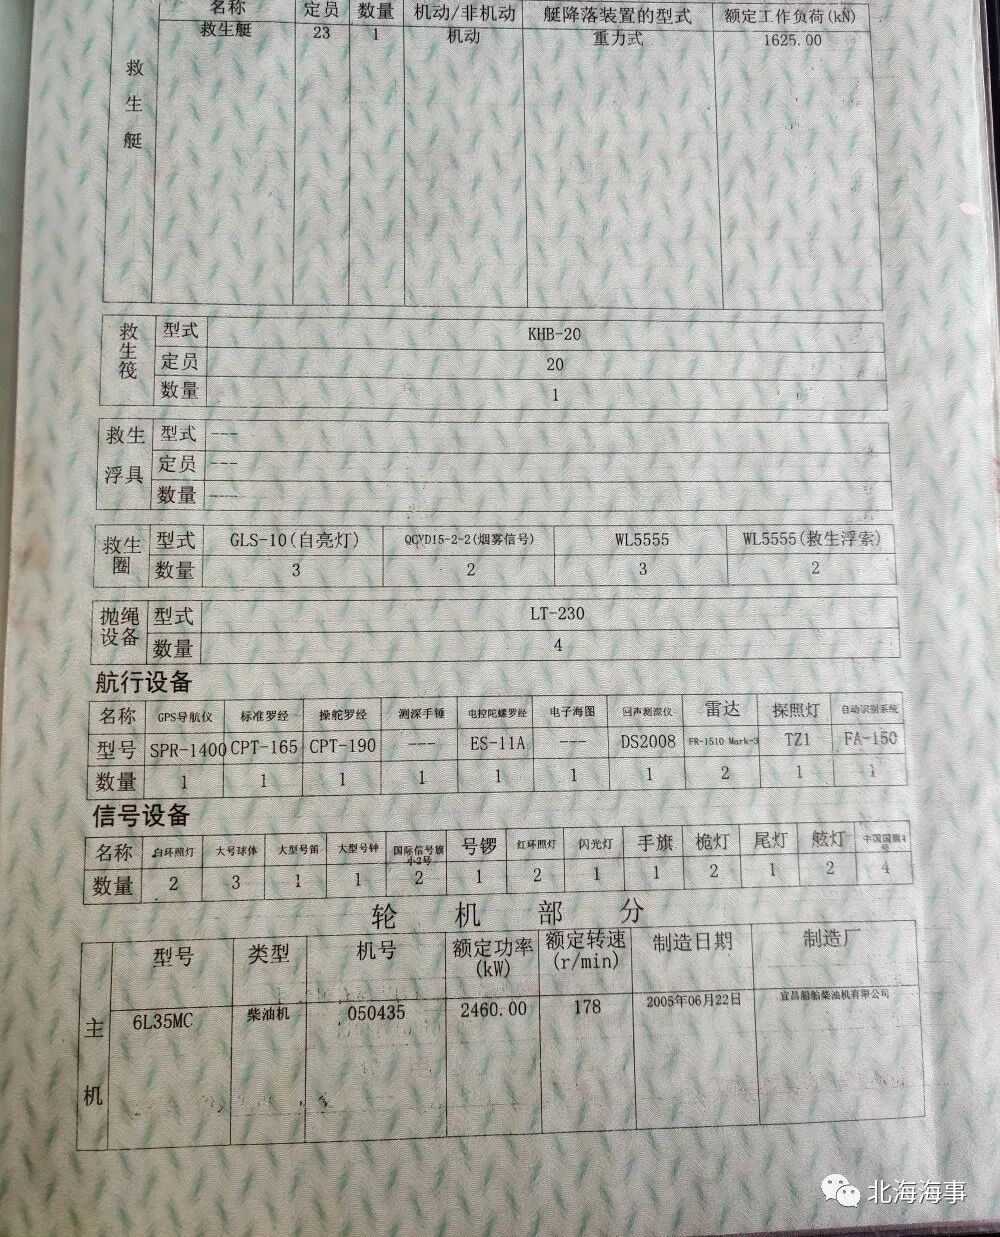 名称 定员 数量 机动/非机动 艇降落装置的型式 额定工作负荷(kN)
救生艇 23 1 机动 重力式 1625.00
救生艇
救生筏 型式 KHB-20
定员 20
数量 1
救生浮具 型式 ---
定员 ---
数量 ---
救生圈 型式 GLS-10(自亮灯) QCYD15-2-2(烟雾信号) WL5555 WL5555(救生浮索)
数量 3 2 3 2
抛绳设备 型式 LT-230
数量 4
航行设备
名称 GPS导航仪 标准罗经 操舵罗经 测深手锤 电控陀螺罗经 电子海图 回声测深仪 雷达 探照灯 自动识别系统
型号 SPR-1400 CPT-165 CPT-190 --- ES-11A --- DS2008 FR-1510 Mark-3 TZ1 FA-150
数量 1 1 1 1 1 1 1 2 1 1
信号设备
名称 白环照灯 大号球体 大型号笛 大型号钟 国际信号旗小2号 号锣 红环照灯 闪光灯 手旗 桅灯 尾灯 舷灯 中国国旗4号
数量 2 3 1 1 2 1 2 1 1 2 1 2 4
轮机部分
型号 类型 机号 额定功率(kW) 额定转速(r/min) 制造日期 制造厂
主机 6L35MC 柴油机 050435 2460.00 178 2005年06月22日 宜昌船舶柴油机有限公司
北海海事